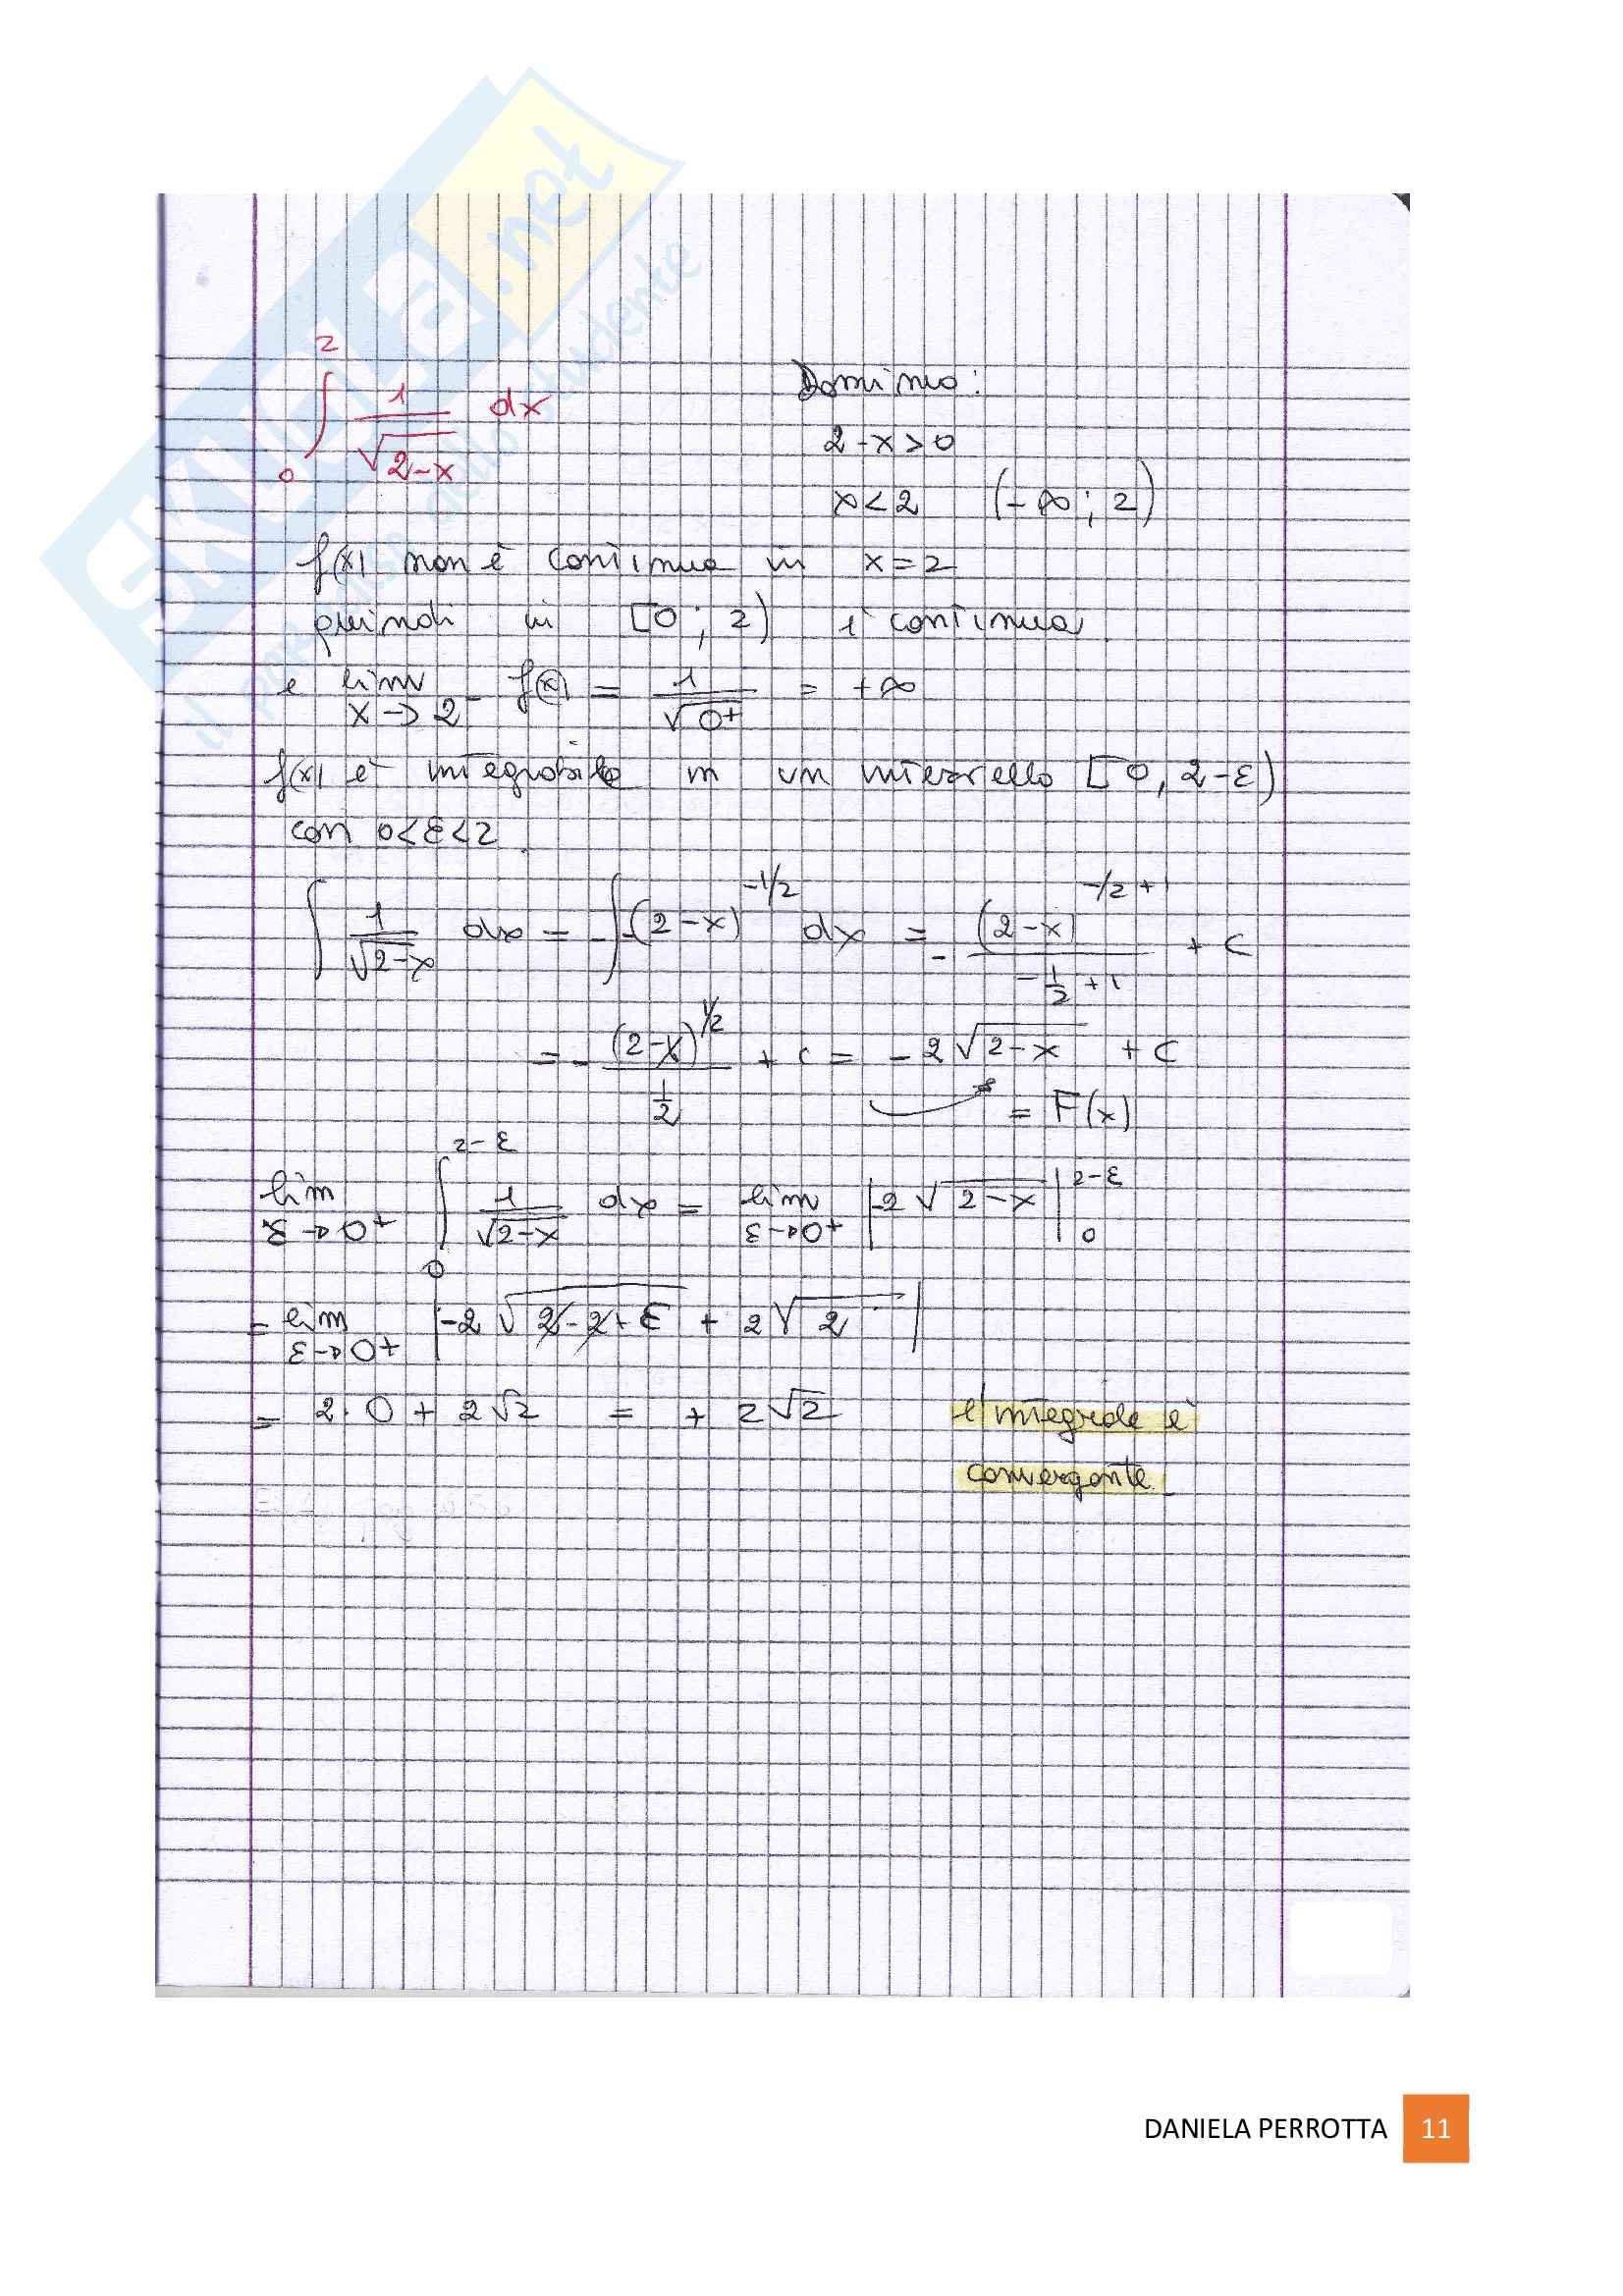 SKUOLA.net
il paradiso dello studente
∫₀² 1/√(2-x) dx
Dominio:
2-x>0
x<2 (-∞; 2)
f(x) non è continua in x=2
quindi in [0; 2) è continua
e lim x→2⁻ f(x) = 1/√0⁺ = +∞
f(x) è integrabile in un intervallo [0, 2-ε)
con 0<ε<2.
∫ 1/√(2-x) dx = -∫-(2-x)^(-1/2) dx = - (2-x)^(-1/2 +1)/(-1/2 +1) + C
= - (2-x)^(1/2)/(1/2) + c = -2√(2-x) + C
= F(x)
lim ε→0⁺ ∫₀^(2-ε) 1/√(2-x) dx = lim ε→0⁺ |-2√(2-x)|₀^(2-ε)
= lim ε→0⁺ |-2√(2-2+ε) + 2√2|
= 2·0 + 2√2 = + 2√2 l'integrale è
convergente.
DANIELA PERROTTA 11